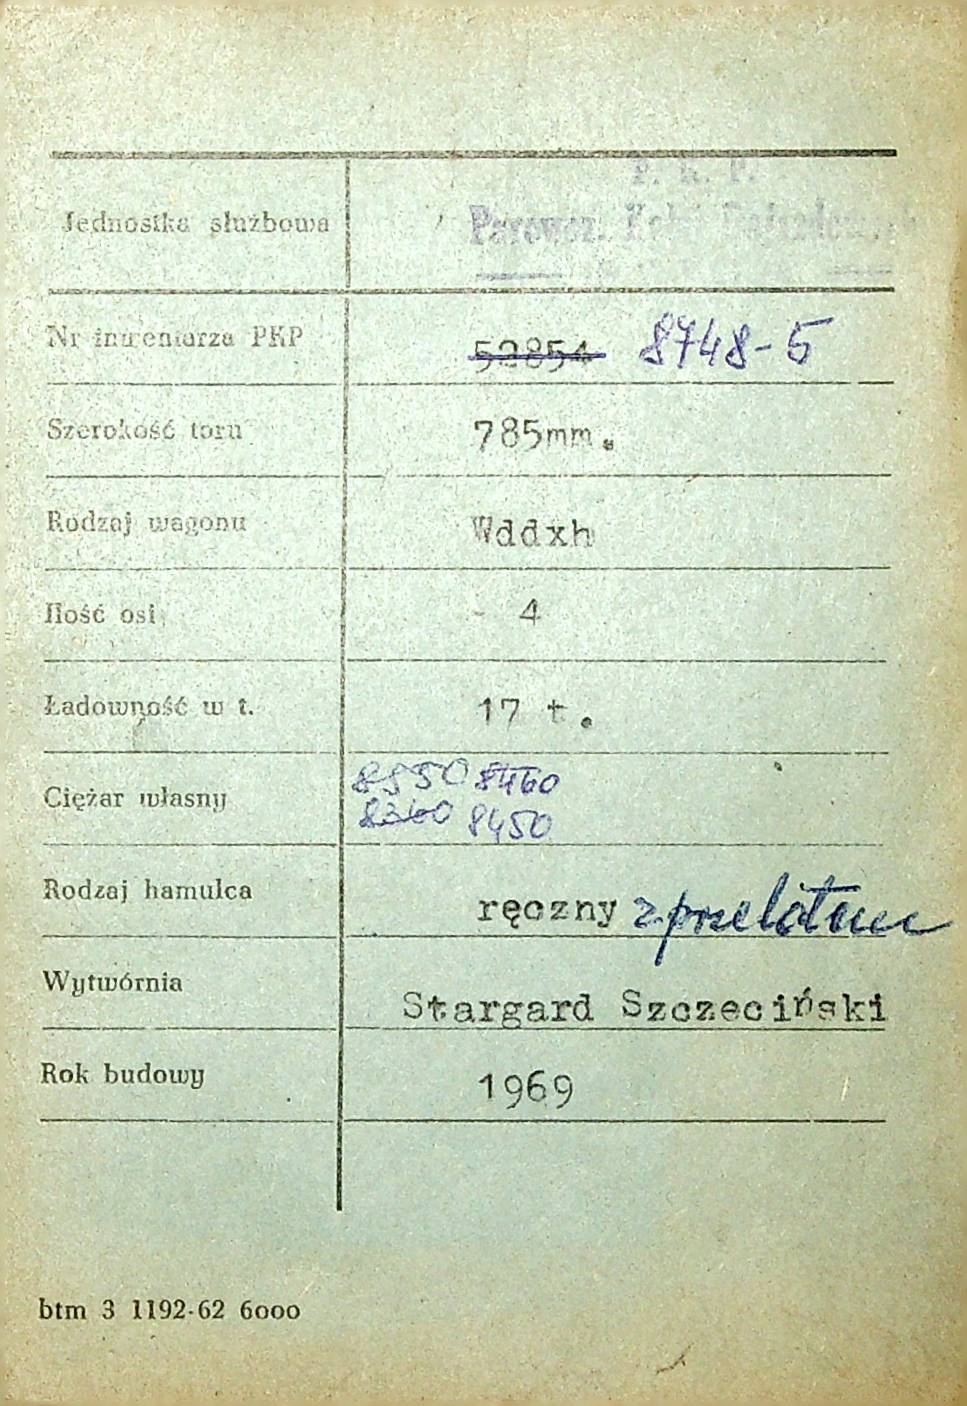 P. K. P.
Jednostka służbowa Parowoz. Kolei Dojazdowych
Nr inwentarza PKP 52854 8748-5
Szerokość toru 785mm.
Rodzaj wagonu Wddxh
Ilość osi 4
Ładowność w t. 17 t.
Ciężar własny 8550 8460
8360 8450
Rodzaj hamulca ręczny z przelotem
Wytwórnia Stargard Szczeciński
Rok budowy 1969
btm 3 1192-62 6000